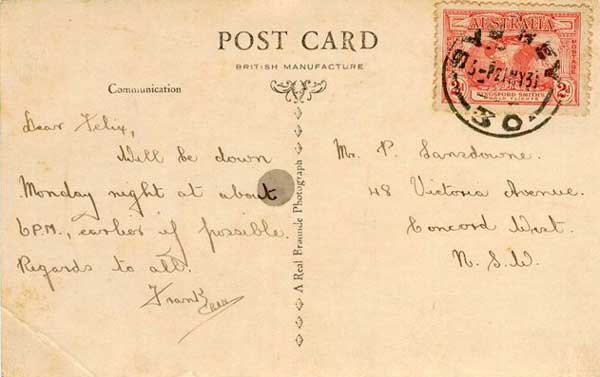 POST CARD
BRITISH MANUFACTURE
Communication
Dear Felix,
Will be down
Monday night at about
6 P.M., earlier if possible.
Regards to all.
Frank
A Real Photograph
Mr. P. Lansdowne.
48 Victoria Avenue.
Concord West.
N.S.W.
AUSTRALIA
POSTAGE
KINGSFORD SMITH'S
WORLD FLIGHTS
2d 2d
SYDNEY
30